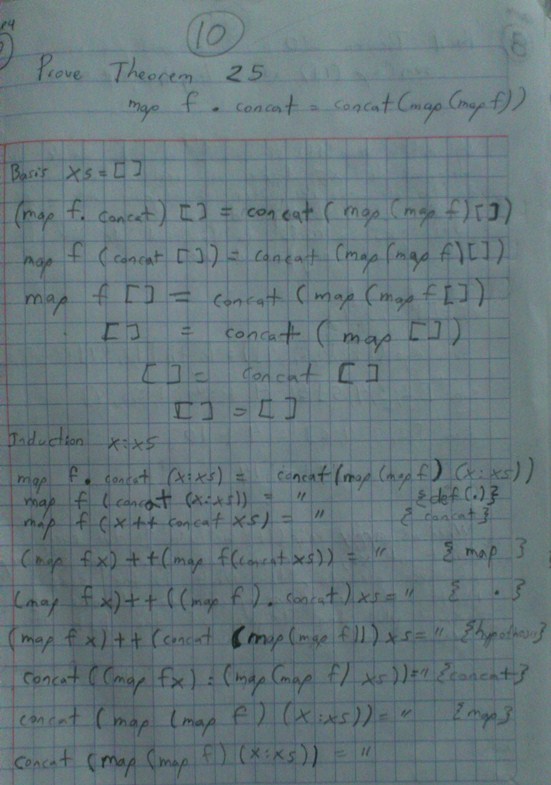 10
Prove Theorem 25
map f . concat = concat(map(map f))
Basis xs = []
(map f. concat) [] = concat (map (map f) [])
map f (concat []) = concat (map(map f)[])
map f [] = concat (map (map f [])
[] = concat (map [])
[] = concat []
[] = []
Induction x:xs
map f. concat (x:xs) = concat(map(map f) (x:xs))
map f (concat (x:xs)) = " {def(.)}
map f (x ++ concat xs) = " {concat}
(map fx) ++ (map f(concat xs)) = " {map }
(map fx) ++ ((map f). concat) xs = " { . }
(map fx) ++ (concat (map(map f))) xs = " {hypothesis}
concat ((map fx) : (map(map f) xs)) = " {concat}
concat (map (map f) (x:xs)) = " {map}
concat (map (map f) (x:xs)) = "